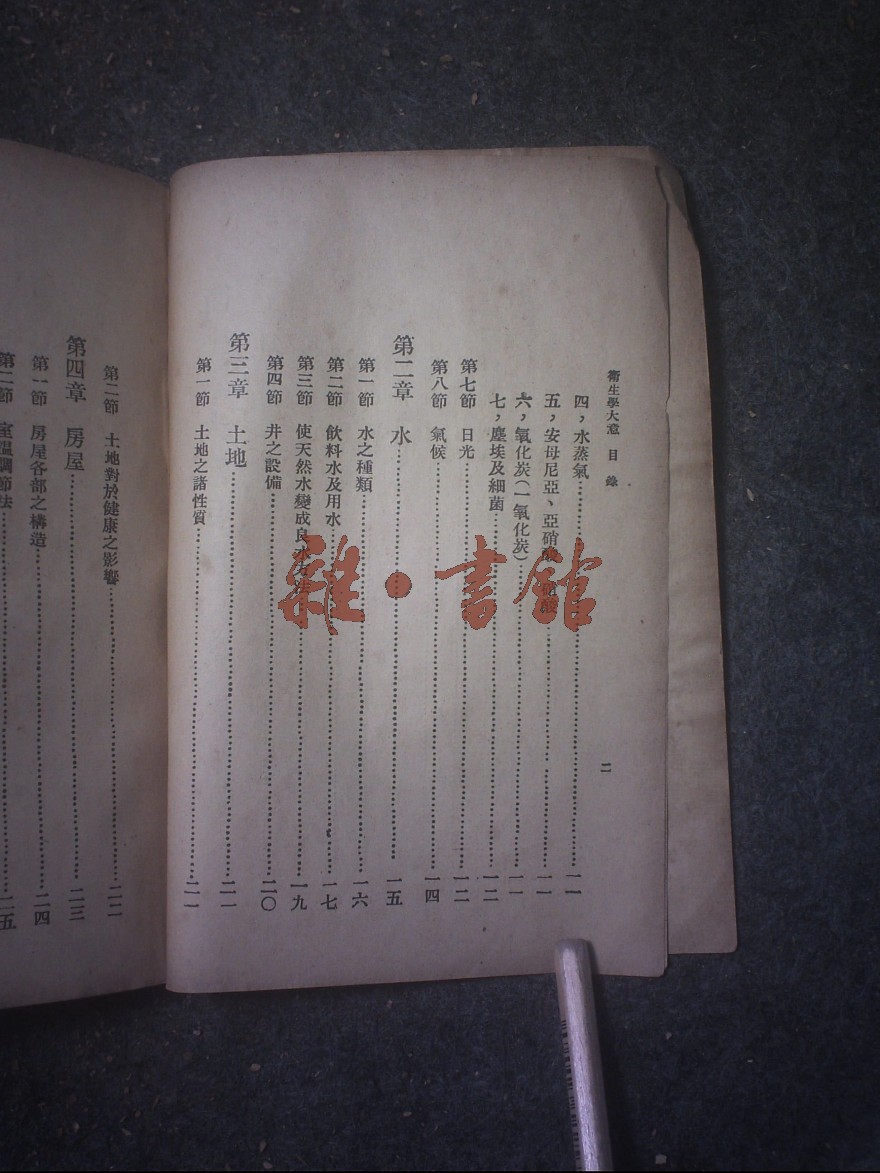 衛生學大意 目錄
二
四，水蒸氣……一一
五，安母尼亞、亞硝酸、硝酸……一一
六，氧化炭（一氧化炭）……一一
七，塵埃及細菌……一二
第七節 日光……一二
第八節 氣候……一四
第二章 水……一五
第一節 水之種類……一六
第二節 飲料水及用水……一七
第三節 使天然水變成良水方法……一九
第四節 井之設備……二〇
第三章 土地……二一
第一節 土地之諸性質……二一
第二節 土地對於健康之影響……二二
第四章 房屋……二三
第一節 房屋各部之構造……二四
第二節 室溫調節法……二五
雜·書館